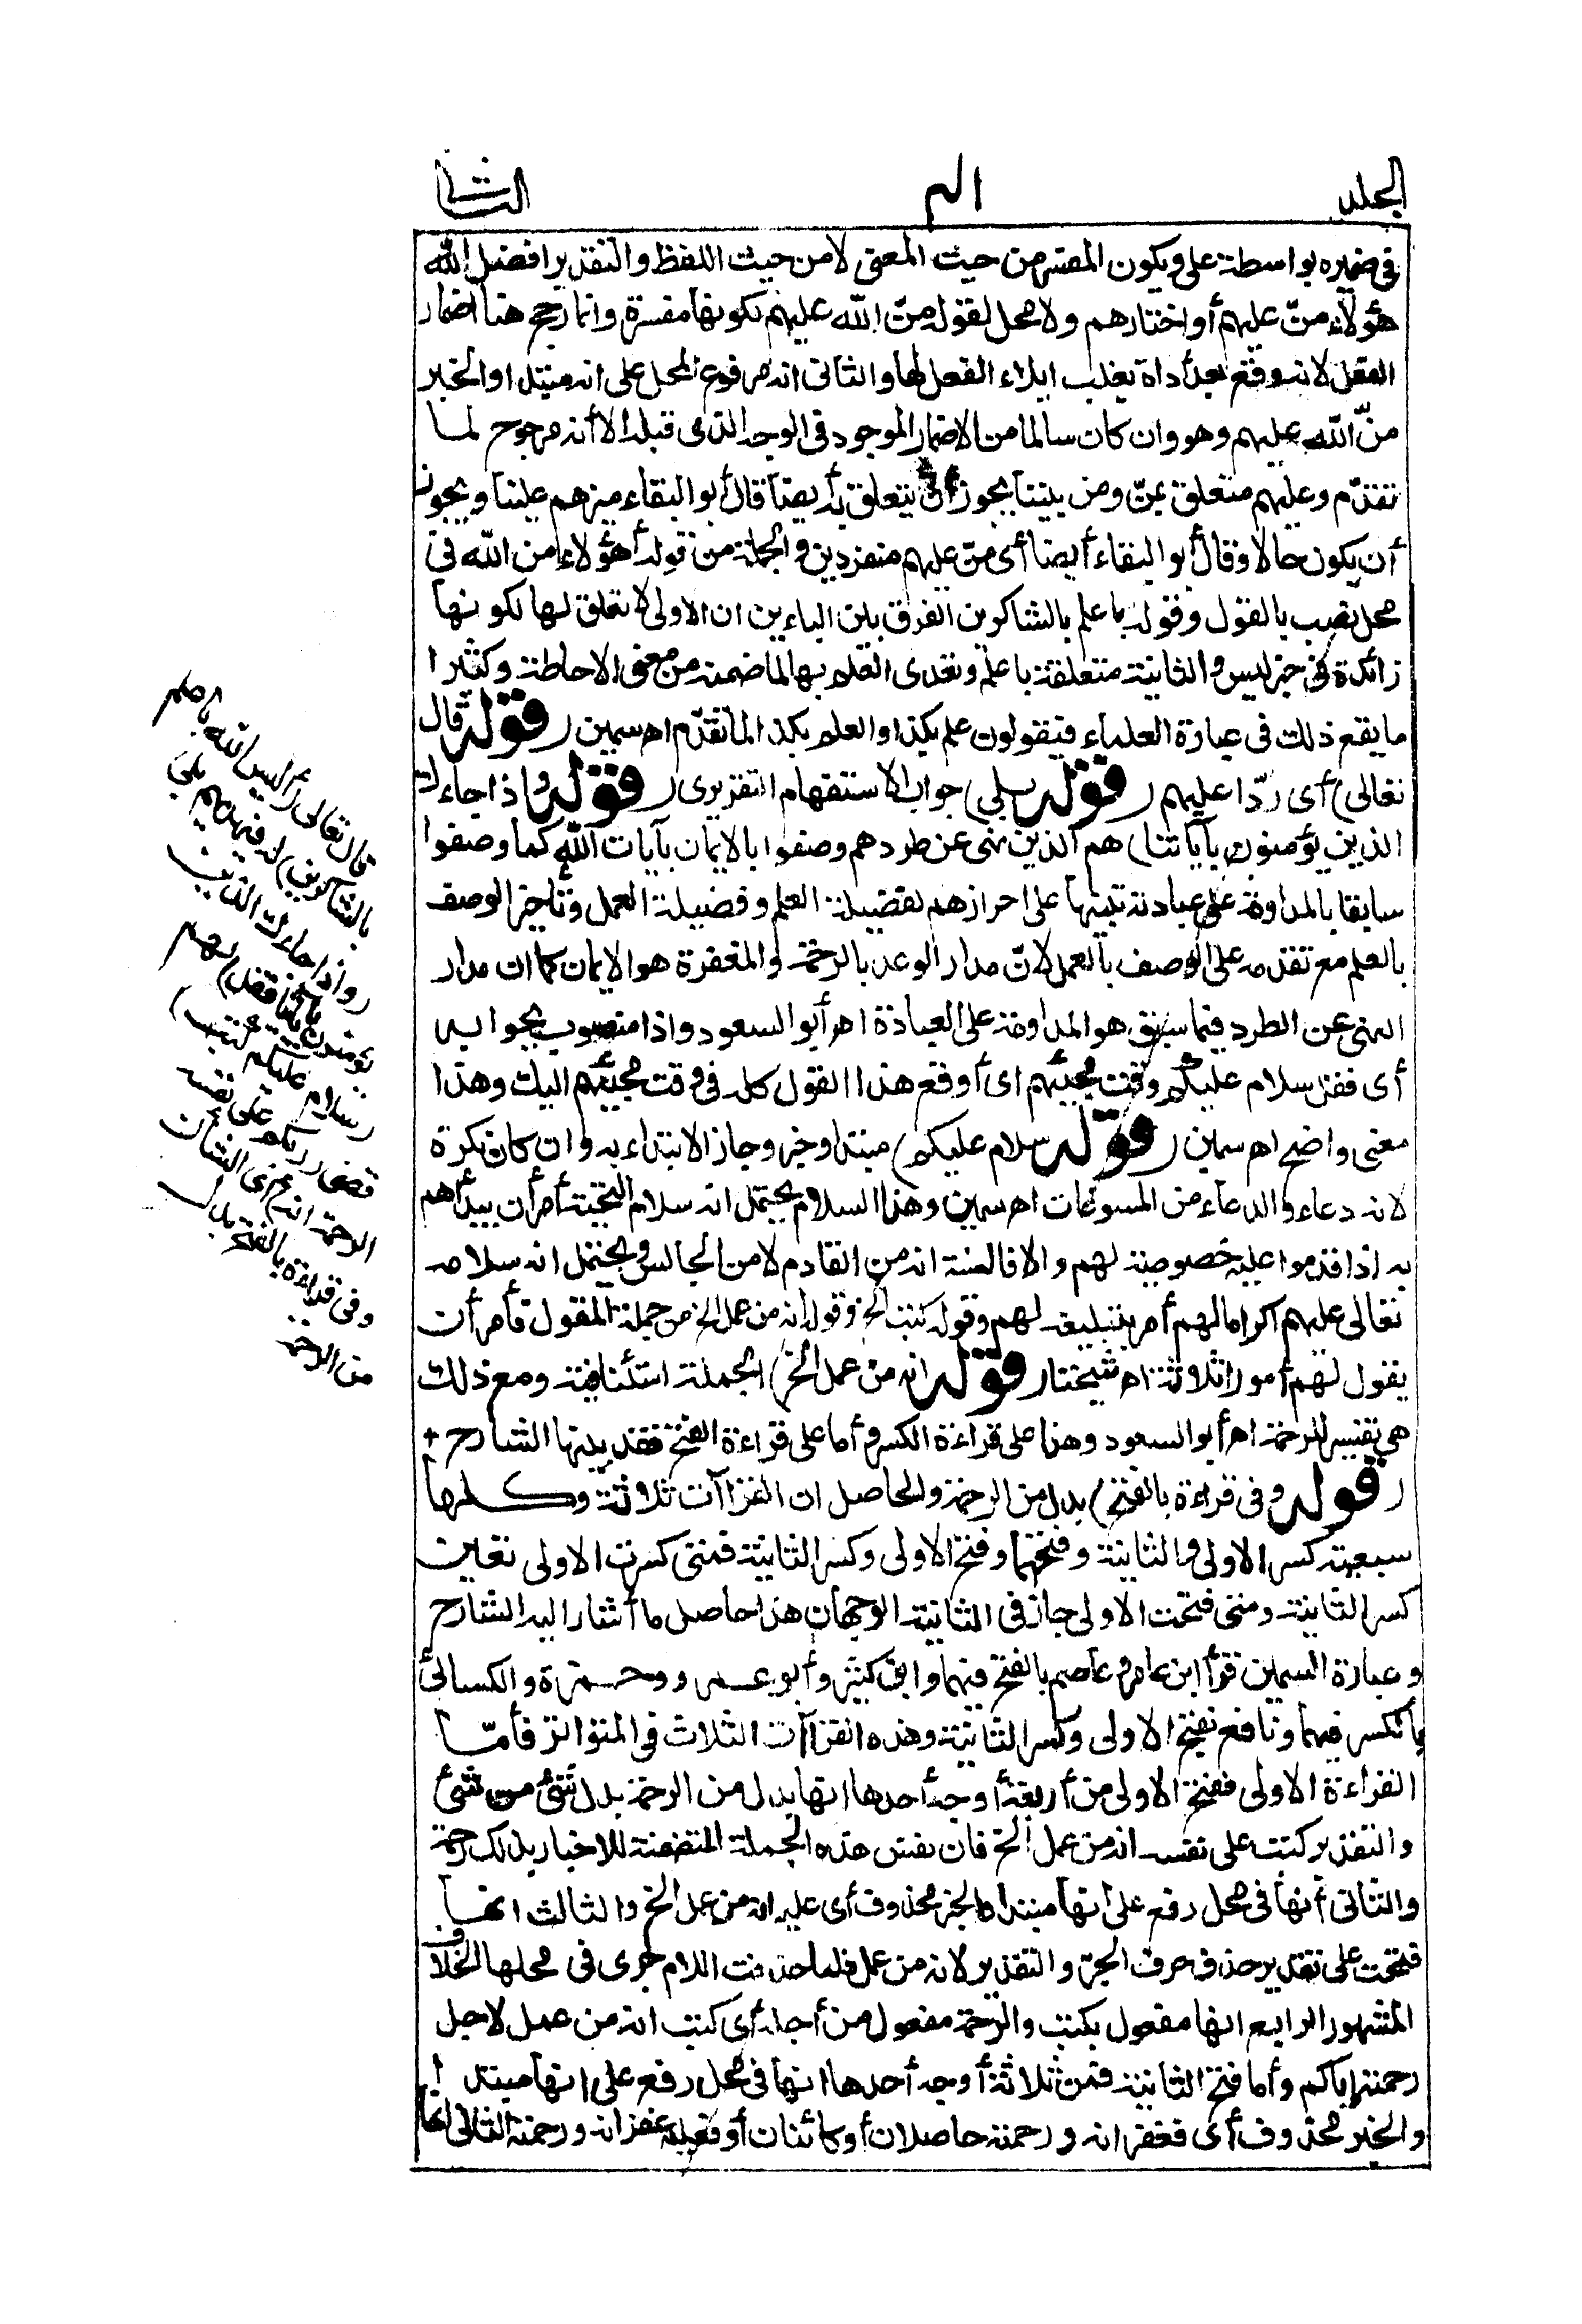 المجلد
الم
الثانى
فى ضميره بواسطة على ويكون المفسر من حيث المعنى لا من حيث اللفظ والتقدير افضل الله
هؤلاء منّ عليهم أو اختارهم ولا محل لقوله منّ الله عليهم لكونها مفسرة وانما رجح هنا اضمار
الفعل لانه وقع بعد أداة يغلب ايلاء الفعل لها والثانى انه مرفوع المحل على انه مبتدا والخبر
منّ الله عليهم وهو وان كان سالما من الاضمار الموجود فى الوجه الذى قبله الا أنه مرجوح لما
تقدّم وعليهم متعلق بمنّ ومن بيننا يجوز أن يتعلق به أيضا قال أبو البقاء ميزهم علينا ويجوز
أن يكون حالا وقال أبو البقاء أيضا أى منّ عليهم منفردين والجملة من قوله أهؤلاء من الله فى
محل نصب بالقول وقوله بأعلم بالشاكرين الفرق بين الباءين ان الاولى لا تعلق لها لكونها
زائدة فى خبر ليس والثانية متعلقة بأعلم وتعدى العلم بها لما ضمنه من معنى الاحاطة وكثيرا
ما يقع ذلك فى عبارة العلماء فيقولون علم بكذا والعلم بكذا لما تقدّم اهـ سمين (قوله قال
تعالى) أى ردّا عليهم (قوله بلى) جواب الاستفهام التقريرى (قوله واذا جاءك
الذين يؤمنون بآياتنا) هم الذين نهى عن طردهم وصفوا بالايمان بآيات الله كما وصفوا
سابقا بالمداومة على عبادته تنبيها على احرازهم لفضيلة العلم وفضيلة العمل وتأخير الوصف
بالعلم مع تقدمه على الوصف بالعمل لانّ مدار الوعد بالرحمة والمغفرة هو الايمان كما ان مدار
النهى عن الطرد فيما سبق هو المداومة على العبادة اهـ أبو السعود واذا منصوب بجوابه
أى فقل سلام عليكم وقت مجيئهم اى أوقع هذا القول كله فى وقت مجيئهم اليك وهذا
معنى واضح اهـ سمين (قوله سلام عليكم) مبتدا وخبر وجاز الابتداء به وان كان نكرة
لانه دعاء والدعاء من المسوغات اهـ سمين وهذا السلام يحتمل انه سلام التحية أمر أن يبدأهم
به اذا قدموا عليه خصوصية لهم والا فالسنة انه من القادم لا من الجالس ويحتمل انه سلامه
تعالى عليهم اكراما لهم أمر بتبليغه لهم وقوله كتب الخ وقوله انه من عمل الخ من جملة المقول فأمر أن
يقول لهم أمورا ثلاثة اهـ شيخنا (قوله انه من عمل الخ) الجملة استئنافية ومع ذلك
هى تفسير للرحمة اهـ أبو السعود وهذا على قراءة الكسر وأما على قراءة الفتح فقد بينها الشارح +
(قوله وفى قراءة بالفتح) بدل من الرحمة والحاصل ان القراآت ثلاثة وكلها
سبعية كسر الاولى والثانية وفتحهما وفتح الاولى وكسر الثانية فمتى كسرت الاولى تعين
كسر الثانية ومتى فتحت الاولى جاز فى الثانية الوجهان هذا حاصل ما أشار اليه الشارح
وعبارة السمين قرأ ابن عامر وعاصم بالفتح فيهما وابن كثير وأبو عمرو وحمزة والكسائى
بالكسر فيهما ونافع بفتح الاولى وكسر الثانية وهذه القراآت الثلاث فى المتواتر فأمّا
القراءة الاولى ففتح الاولى من أربعة أوجه أحدها انها بدل من الرحمة بدل شئ من شئ
والتقدير كتب على نفسه انه من عمل الخ فان نفس هذه الجملة المتضمنة للاخبار بذلك رحمة
والثانى أنها فى محل رفع على أنها مبتدأ والخبر محذوف أى عليه انه من عمل الخ والثالث انها
فتحت على تقدير حذف حرف الجرّ والتقدير لانه من عمل فلما حذفت اللام جرى فى محلها الخلاف
المشهور الرابع انها مفعول بكتب والرحمة مفعول من أجله أى كتب انه من عمل لاجل
رحمته اياكم وأما فتح الثانية فمن ثلاثة أوجه أحدها انها فى محل رفع على انها مبتدأ
والخبر محذوف أى فغفرانه ورحمته حاصلان أو كائنان أو فعليه غفرانه ورحمته الثانى انها
قال تعالى (أليس الله بأعلم
بالشاكرين) له فيهديهم بلى
(واذا جاءك الذين
يؤمنون بآياتنا فقل) لهم
(سلام عليكم كتب)
قضى (ربكم على نفسه
الرحمة انه) أى الشأن
وفى قراءة بالفتح بدل
من الرحمة